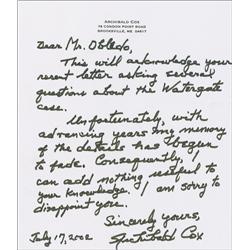 ARCHIBALD COX
78 CONDON POINT ROAD
BROOKSVILLE, ME 04617
Dear Mr. Obledo,
This will acknowledge your
recent letter asking several
questions about the Watergate
case.
Unfortunately, with
advancing years my memory
of the details has begun
to fade. Consequently, I
can add nothing useful to
your knowledge. I am sorry to
disappoint you.
Sincerely yours,
July 17, 2002 Archibald Cox